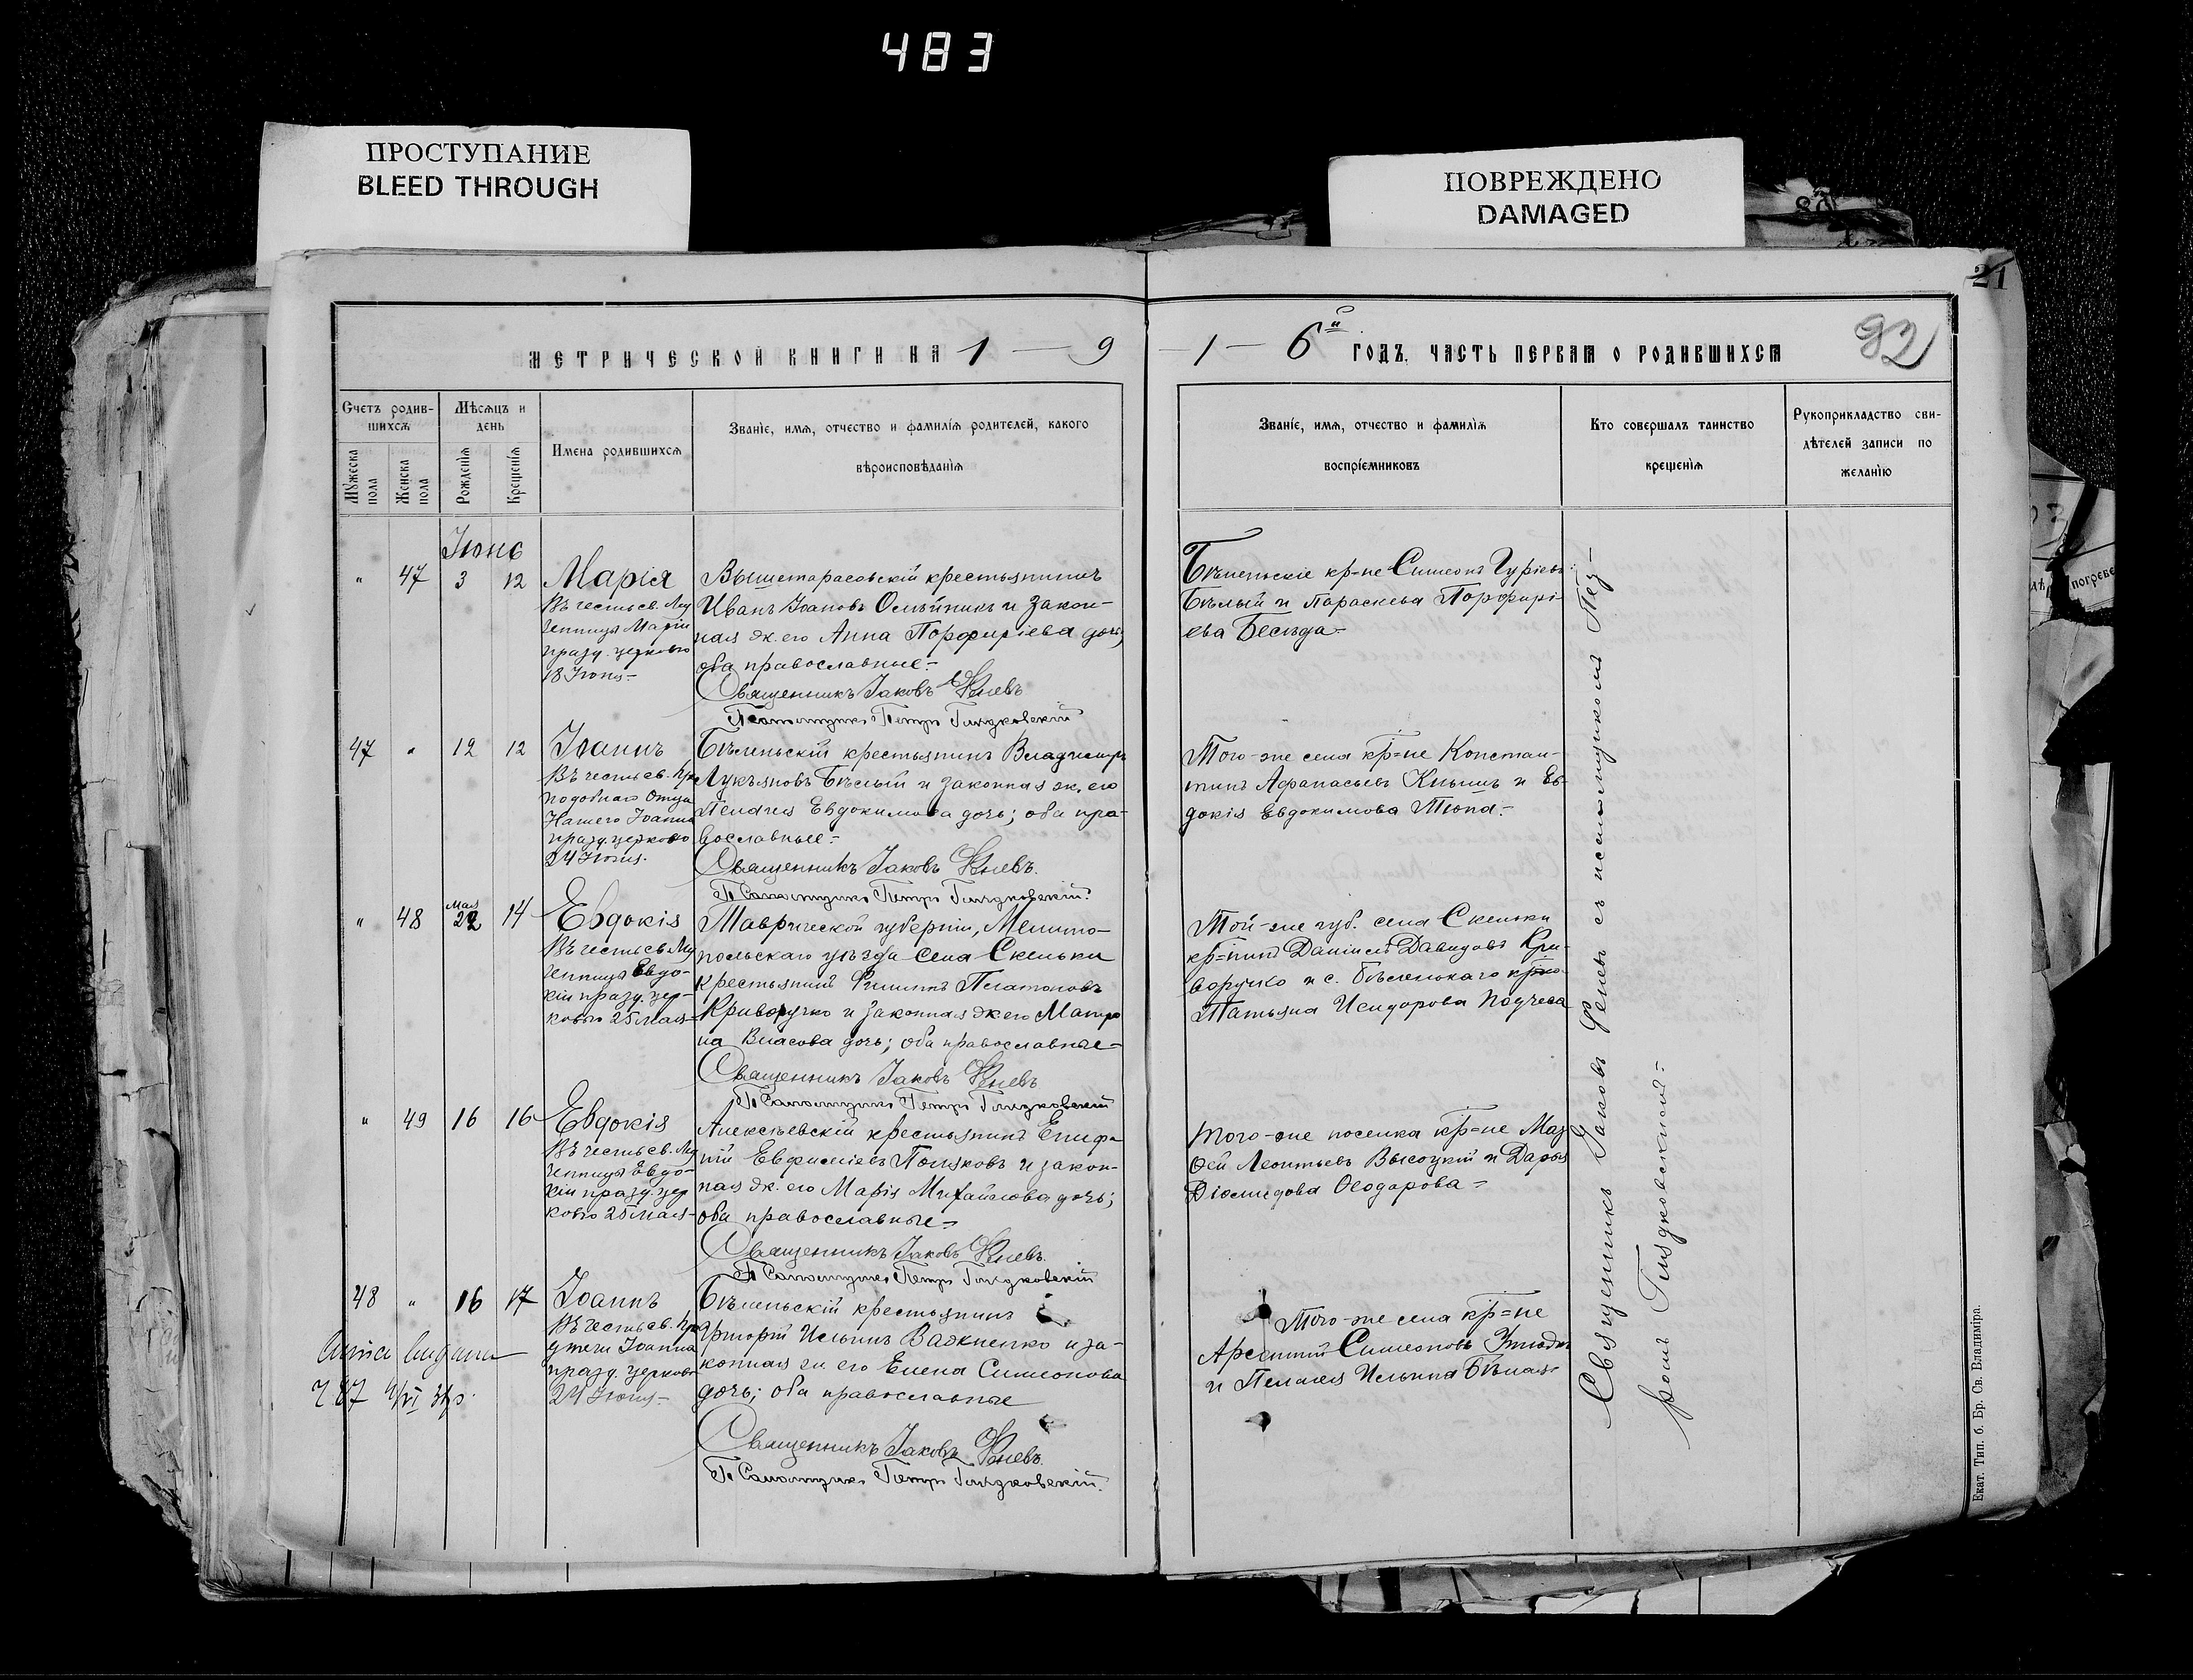 483
ПРОСТУПАНИЕ
BLEED THROUGH
ПОВРЕЖДЕНО
DAMAGED
21
92
МЕТРИЧЕСКОЙ КНИГИ НА 1 — 9
— 1 — 6й ГОДЪ. ЧАСТЬ ПЕРВАЯ О РОДИВШИХСЯ
Счетъ родив-
шихсѧ
Мѣсѧцъ и
день
Мужеска
пола
Женска
пола
Рожденїѧ
Крещенїѧ
Имена родившихсѧ
Званїе, имѧ, отчество и фамилїѧ родителей, какого
вѣроисповѣданїѧ
Званїе, имѧ, отчество и фамилїѧ
воспрїемниковъ
Кто совершалъ таинство
крещенїѧ
Рукоприкладство сви-
дѣтелей записи по
желанїю
Іюнь
" 47 3 12 Марія
Въ честь св. Му
ченицы Маріи
празд. церковью
18 Іюня —
Вышетарасовскій крестьянинъ
Иванъ Іоановъ Олѣйникъ и закон-
ная ж. его Анна Порфиріева дочь;
оба православные. —
Священникъ Іаковъ Ѳеневъ
Псаломщикъ Петръ Гляздковскій
Бѣленьскіе кр=не Симеонъ Гуріевъ
Бѣлый и Параскева Порфирі-
ева Бесѣда. —
47 " 12 12 Іоаннъ
Въ честь св. Пре
подобнаго Отца
Нашего Іоанна
празд. церковью
24 Іюня.
Бѣленьскій крестьянинъ Владимиръ
Лукьяновъ Бѣлый и законная ж. его
Пелагея Евдокимова дочь; оба пра-
вославные —
Священникъ Іаковъ Ѳеневъ.
Псаломщикъ Петръ Гляздковскій.
Того-же села кр=не Констан-
тинъ Афанасьевъ Книшъ и Ев-
докія Евдокимова Тюпа. —
" 48 Мая 22 14 Евдокія
Въ честь св. Му
ченицы Евдо-
кіи празд. цер-
ковью 25 Мая —
Таврической губерніи, Мелито-
польскаго уѣзда села Скельки
крестьянинъ Филиппъ Платоновъ
Криворучко и законная ж. его Матро
на Власова дочь; оба православные —
Священникъ Іаковъ Ѳеневъ
Псаломщикъ Петръ Гляздковскій
Той-же губ. села Скельки
кр=нинъ Даніилъ Давидовъ Кри-
воручко и с. Бѣленькаго
Татьяна Исидорова
" 49 16 16 Евдокія
Въ честь св. Му
ченицы Евдо-
кіи празд. цер
ковью 25 Мая —
Алексѣевскій крестьянинъ Епифа
ній Евфиміевъ Поляковъ и закон-
ная ж. его Марія Михайлова дочь;
оба православные —
Священникъ Іаковъ Ѳеневъ.
Псаломщикъ Петръ Гляздковскій
того-же поселка кр=не
Леонтьевъ Высоцкій и Дарья
Діомидова Ѳеодорова —
48 " 16 17 Іоаннъ
Въ честь св. Пре
дтечи Іоанна
празд. церковью
24 Іюня —
Бѣленьскій крестьянинъ
Григорій Ильинъ Важненко и за-
конная ж. его Елена Симеонова
дочь; оба православные
Священникъ Іаковъ Ѳеневъ.
Псаломщикъ Петръ Гляздковскій.
Того-же села кр=не
Арсеній Симеоновъ
и Пелагея Ильина Бѣлая
Священникъ Іаковъ Ѳеневъ съ псаломщикомъ Пет-
ромъ Гляздковскимъ —
Екат. Тип. б. Бр. Св. Владиміра.